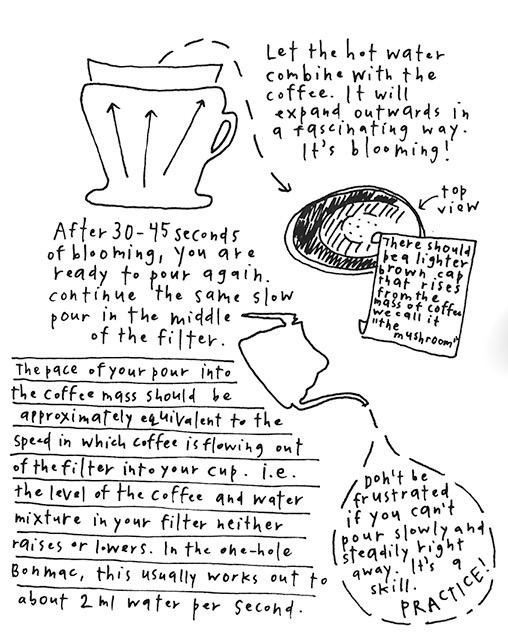 Let the hot water
combine with the
coffee. It will
expand outwards in
a fascinating way.
It's blooming!
top
view
There should
be a lighter
brown cap
that rises
from the
mass of coffee
we call it
"the
mushroom"
After 30-45 seconds
of blooming, you are
ready to pour again.
continue the same slow
pour in the middle
of the filter.
The pace of your pour into
the coffee mass should be
approximately equivalent to the
speed in which coffee is flowing out
of the filter into your cup. i.e.
the level of the coffee and water
mixture in your filter neither
raises or lowers. In the one-hole
Bonmac, this usually works out to
about 2 ml water per second.
Don't be
frustrated
if you can't
pour slowly and
steadily right
away. It's a
skill.
PRACTICE!